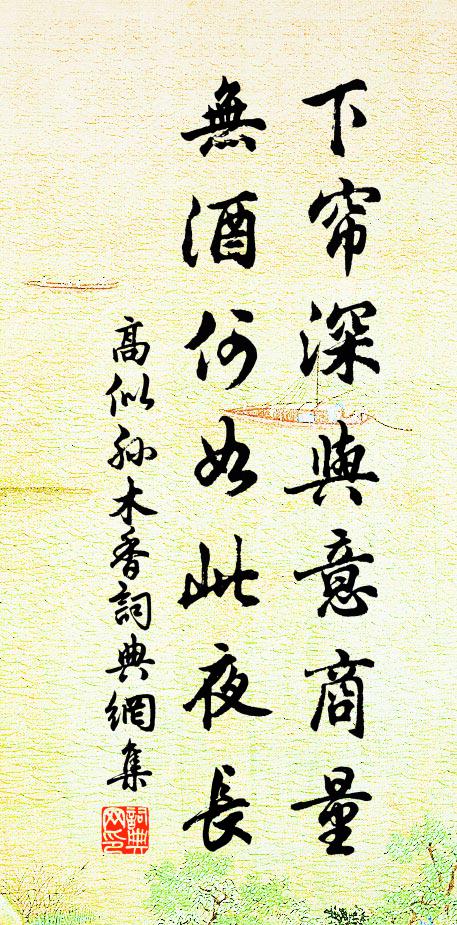 下帘深與意商量
無酒何如此夜長
高似孫木香詞典網集
詞典网印